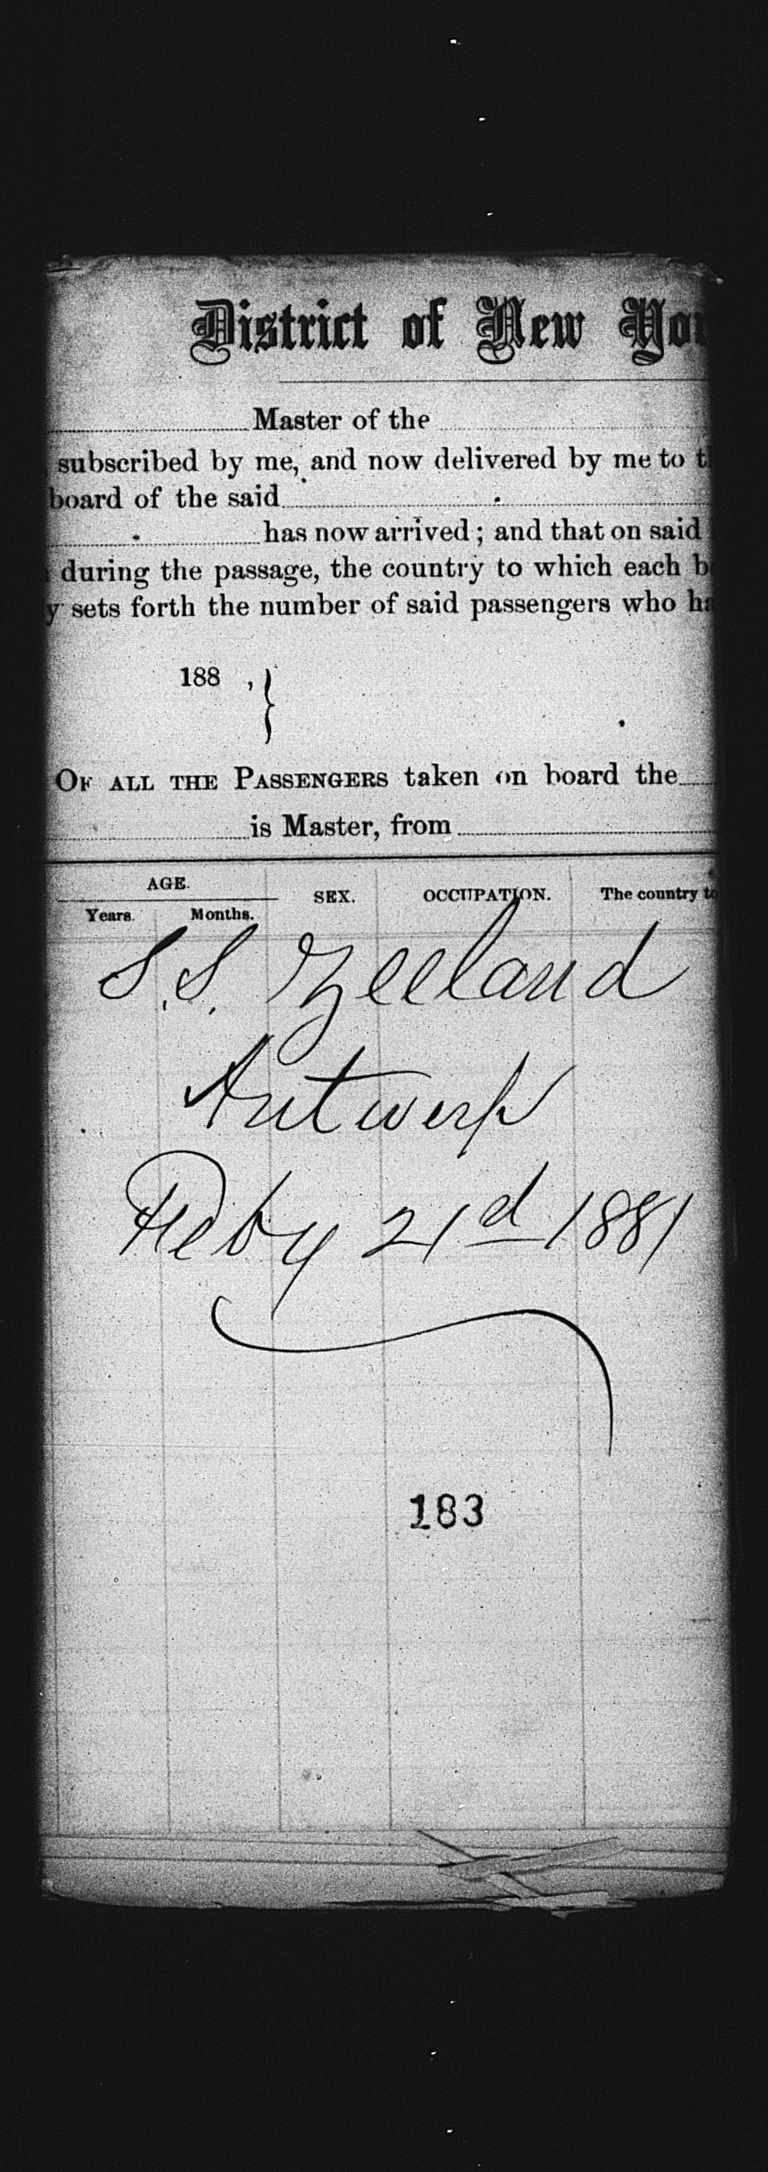 District of New Yor
Master of the
subscribed by me, and now delivered by me to t
board of the said
has now arrived; and that on said
during the passage, the country to which each b
y sets forth the number of said passengers who ha
188 , }
OF ALL THE PASSENGERS taken on board the
is Master, from
AGE. SEX. OCCUPATION. The country to
Years. Months.
S.S. Zeeland
Antwerp
Feby 21d 1881
183